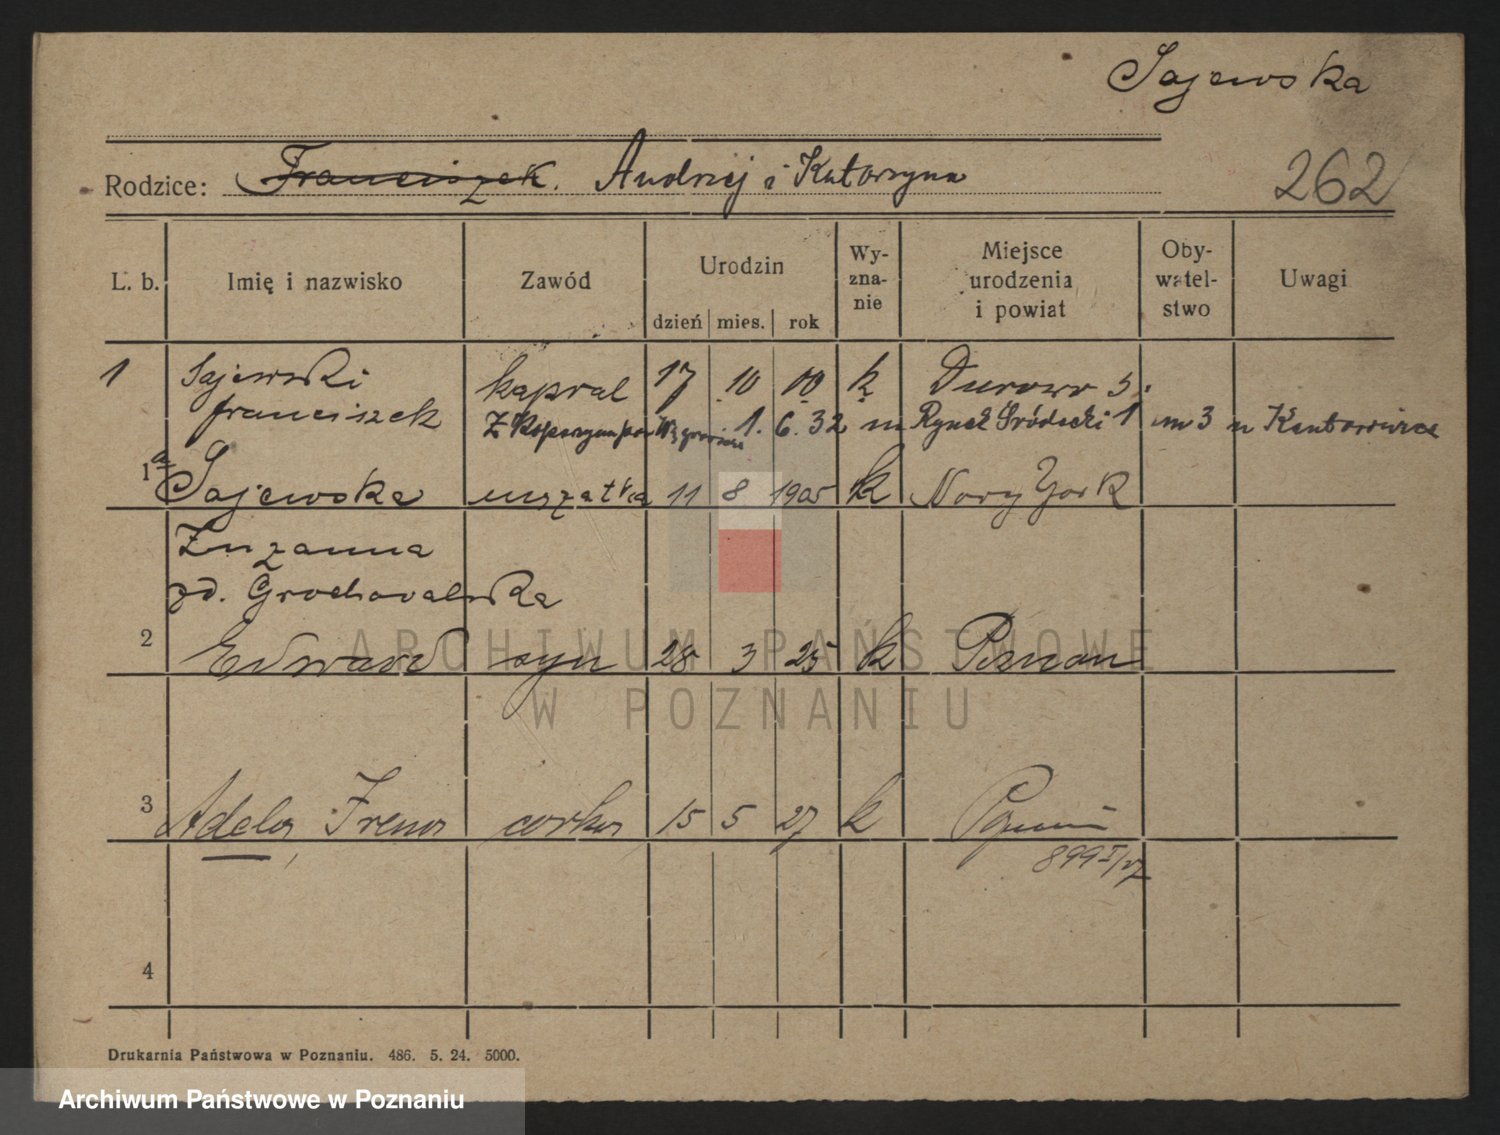 Sajewska
Rodzice: Franciszek. Andrzej i Katarzyna
262
L. b. Imię i nazwisko Zawód Urodzin dzień mies. rok Wy-zna-nie Miejsce urodzenia i powiat Oby-watel-stwo Uwagi
1 Sajewski kapral 17 10 00 k Durowo
franciszek Z 1. 6. 32 Rynek Śródecki 1 m 3 u Kantorowicz
1a Sajewska 11 8 1905 k Nowy York
Zuzanna
zd. Grochowalska
2 Edward syn 28 3 25 k Poznań
3 Adela, Irena córka 15 5 27 k Poznań
899 I/27
4
Drukarnia Państwowa w Poznaniu. 486. 5. 24. 5000.
ARCHIWUM PAŃSTWOWE
W POZNANIU
Archiwum Państwowe w Poznaniu